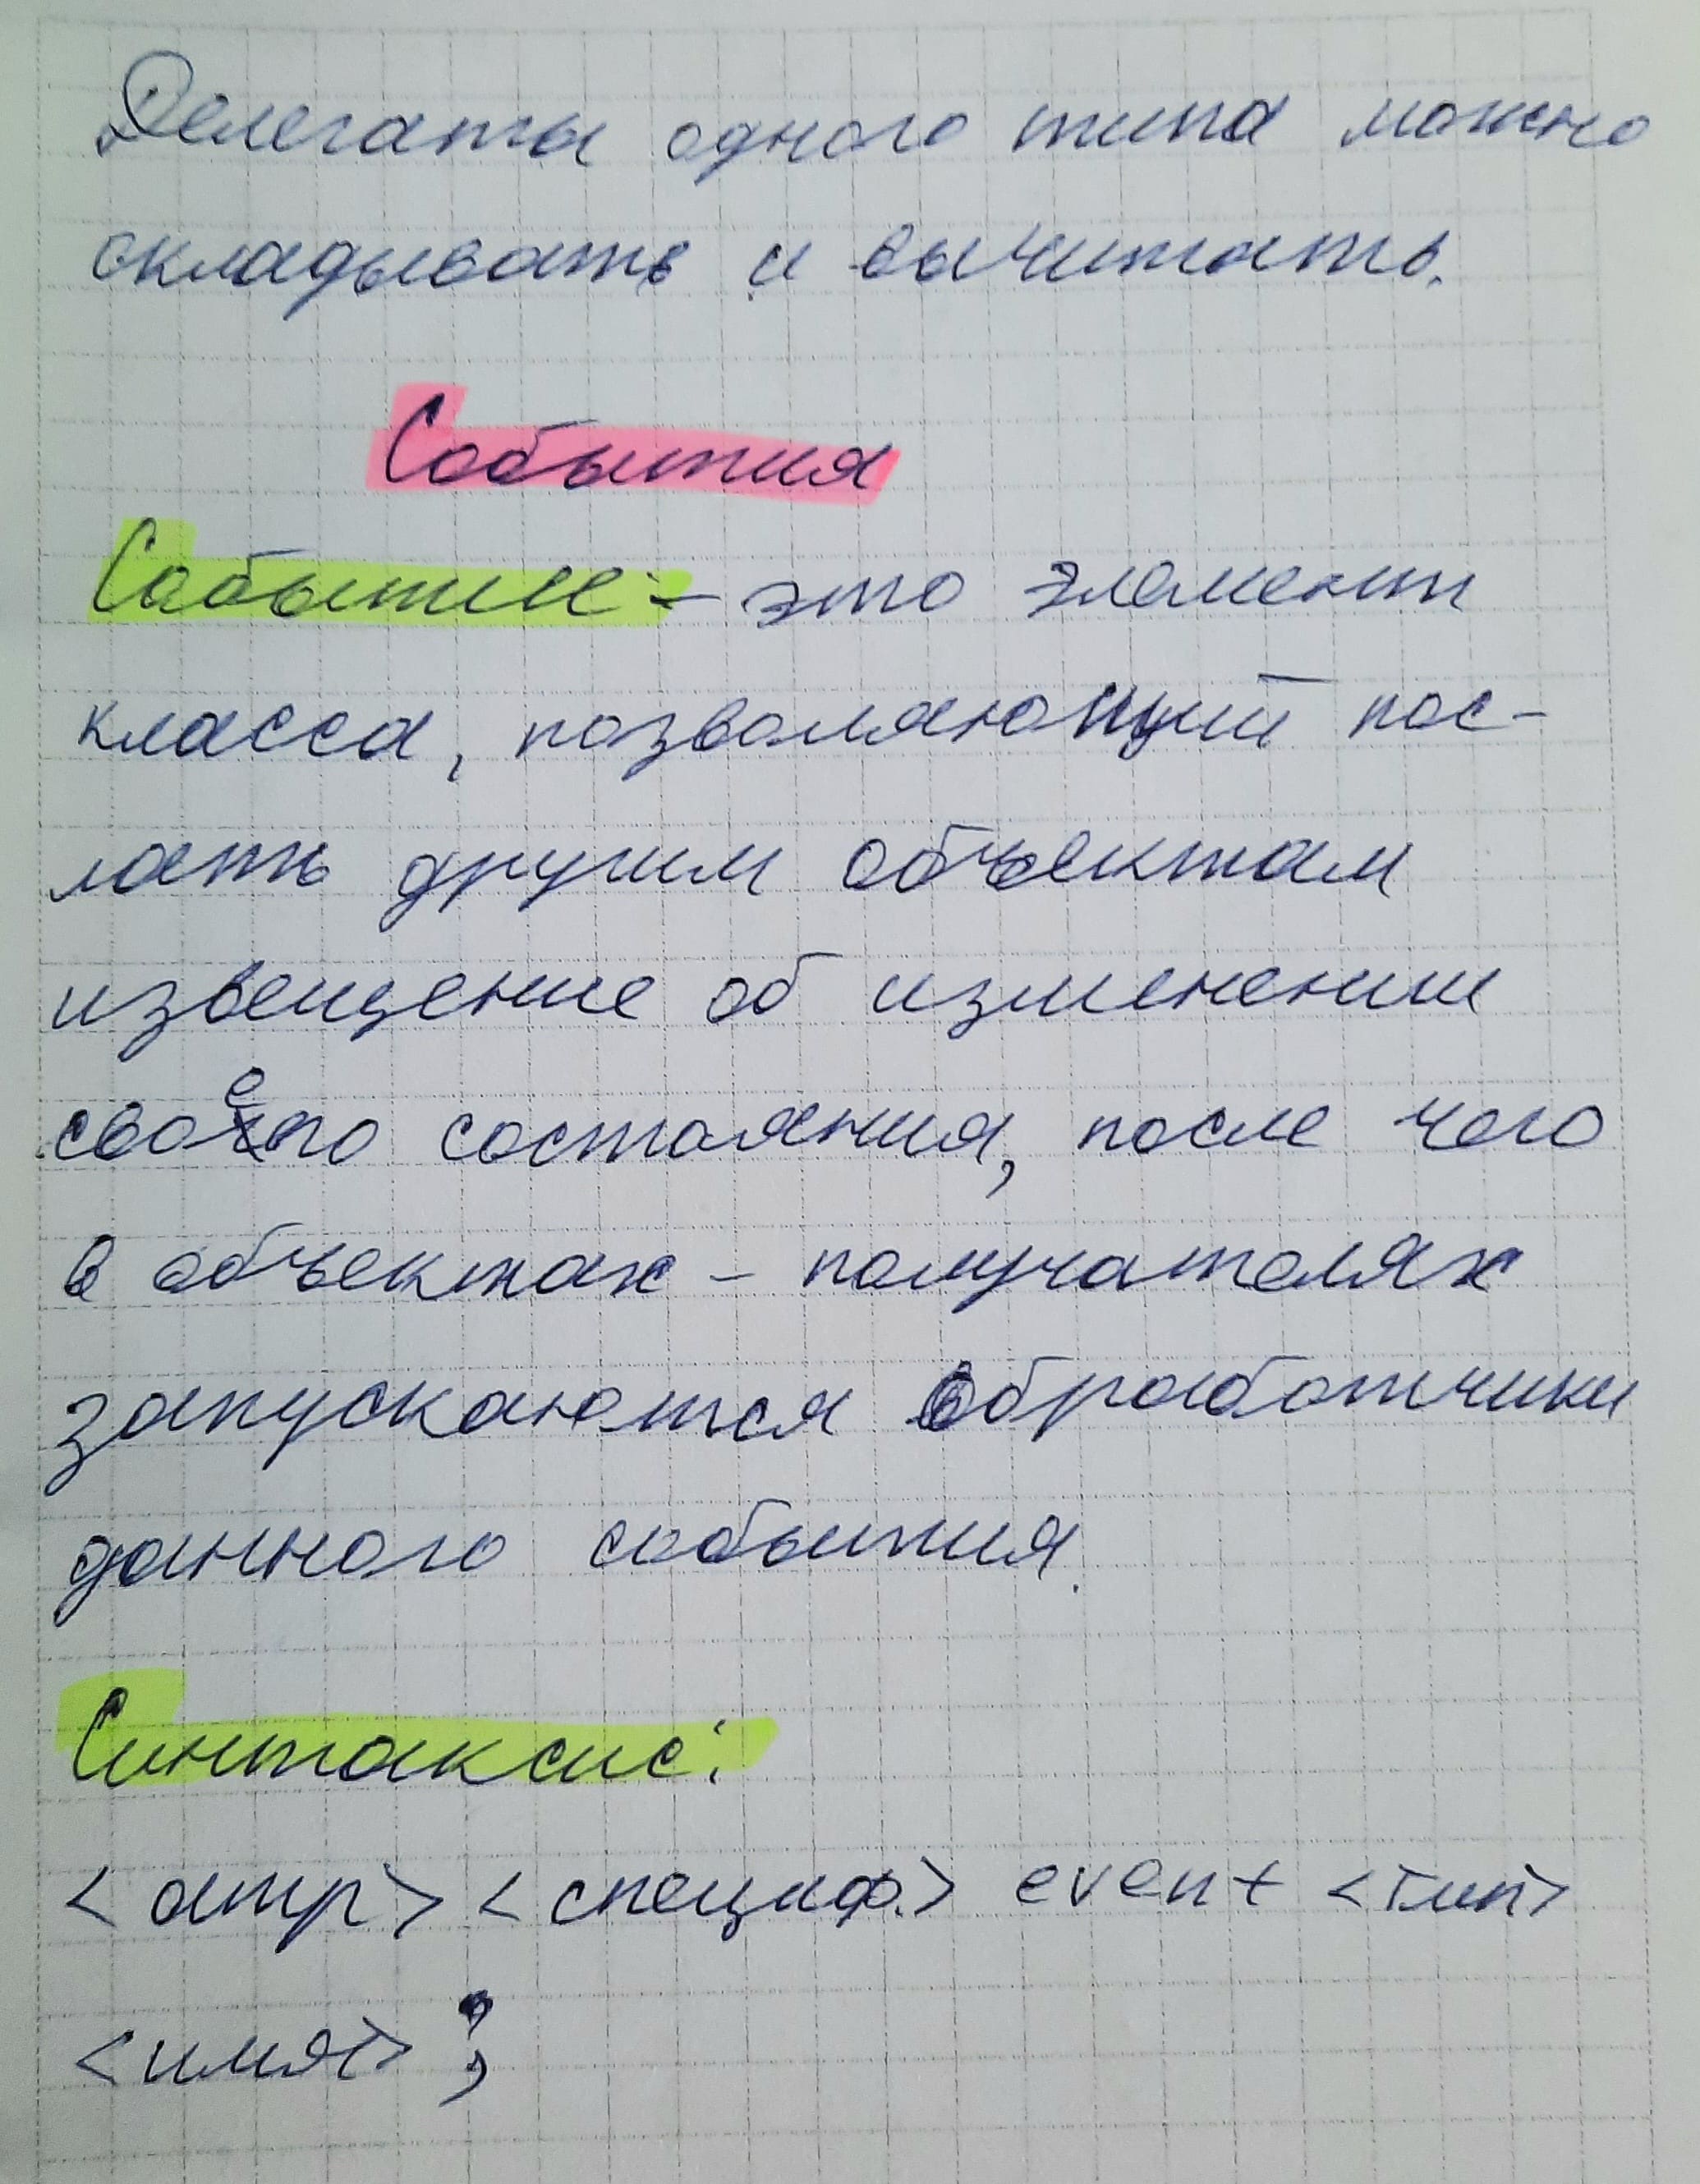 Делегаты одного типа можно
складывать и вычитать.
События
Событие - это элемент
класса, позволяющий пос-
лать другим объектам
извещение об изменении
своего состояния, после чего
в объектах - получателях
запускаются обработчики
данного события.
Синтаксис:
<атр> <специф.> event <тип>
<имя> ;